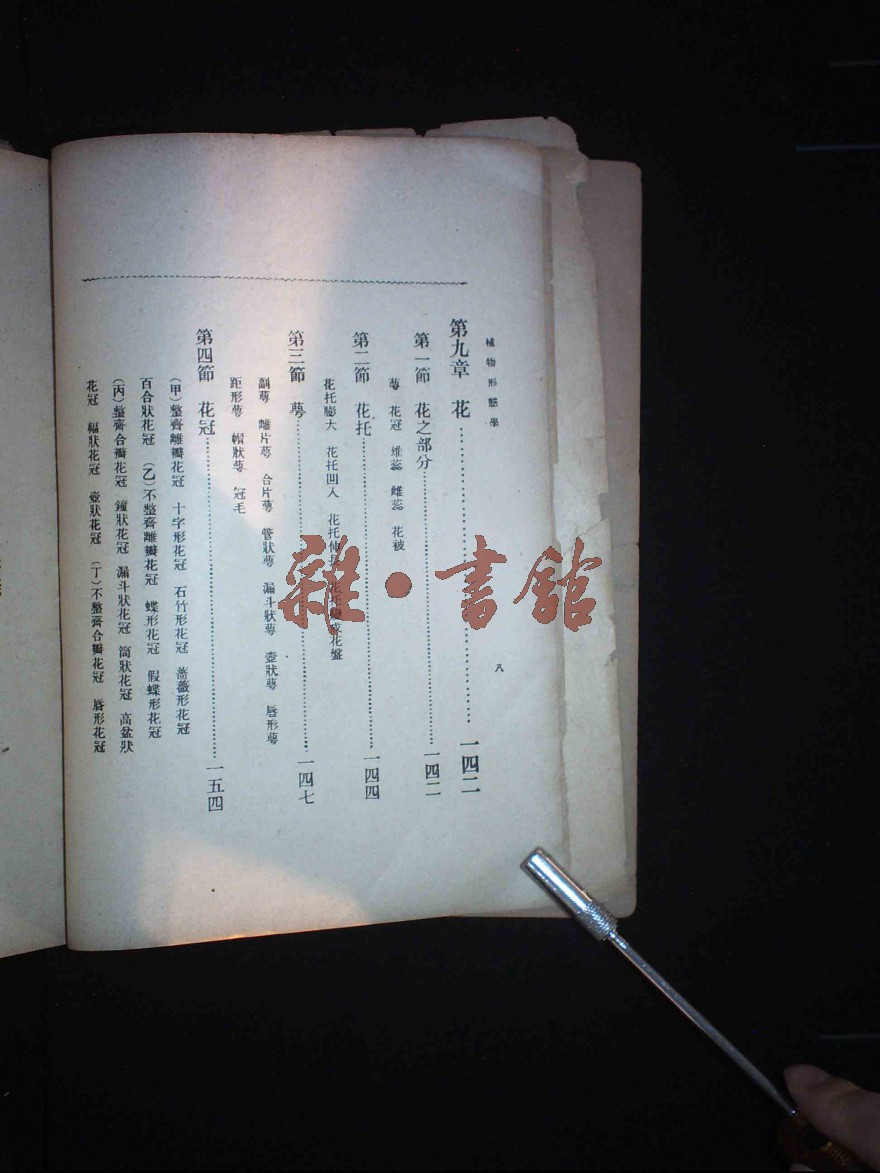 植物形態學
八
第九章 花………一四二
第一節 花之部分………一四二
萼 花冠 雄蕊 雌蕊 花被
第二節 花托………一四四
花托膨大 花托凹入 花托伸長 花托 成花盤
第三節 萼………一四七
副萼 離片萼 合片萼 管狀萼 漏斗狀萼 壺狀萼 唇形萼
距形萼 帽狀萼 冠毛
第四節 花冠………一五四
(甲)整齊離瓣花冠 十字形花冠 石竹形花冠 薔薇形花冠
百合狀花冠 (乙)不整齊離瓣花冠 蝶形花冠 假蝶形花冠
(丙)整齊合瓣花冠 鐘狀花冠 漏斗狀花冠 筒狀花冠 高盆狀
花冠 輻狀花冠 壺狀花冠 (丁)不整齊合瓣花冠 唇形花冠
雜·書館